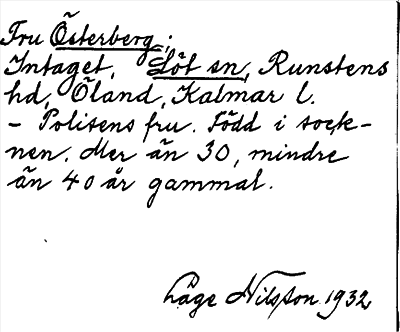 Fru Österberg;
Intaget, Löt sn, Runstens
hd, Öland, Kalmar l.
- Polisens fru. Född i sock-
nen. Mer än 30, mindre
än 40 år gammal.
Låge Nilsson 1932